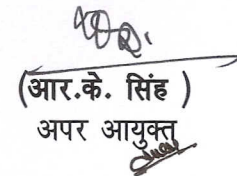 (आर.के. सिंह )
अपर आयुक्त